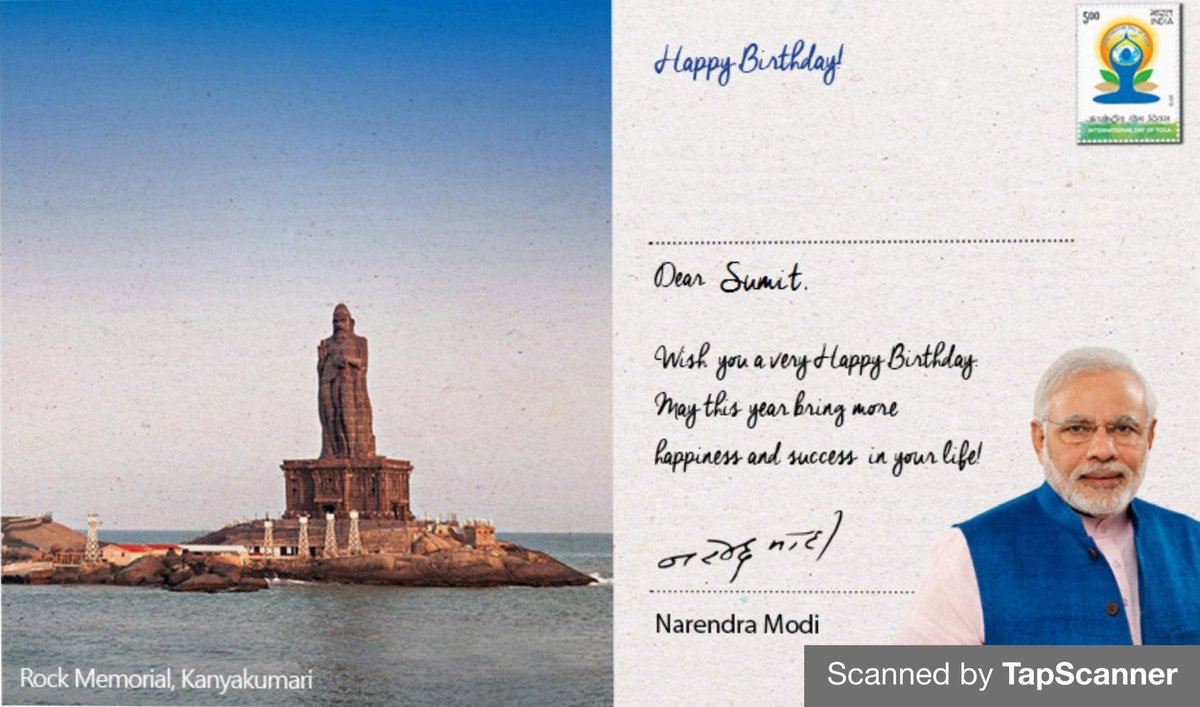 Happy Birthday!
5.00
भारत
INDIA
अंतर्राष्ट्रीय योग दिवस
INTERNATIONAL DAY OF YOGA
Dear Sumit.
Wish you a very Happy Birthday.
May this year bring more
happiness and success in your life!
नरेन्द्र मोदी
Narendra Modi
Rock Memorial, Kanyakumari
Scanned by TapScanner